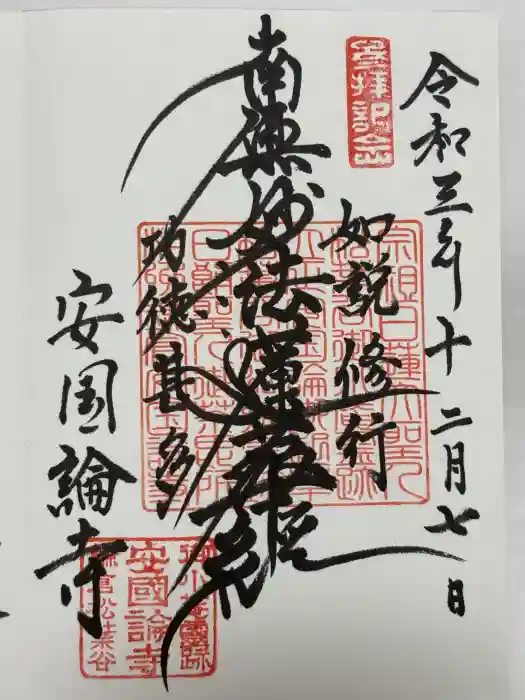 参拝記念
令和三年十二月七日
如説修行
南無妙法蓮華経
功徳甚多
安国論寺
御小菴霊跡
安國論寺
鎌倉松葉谷